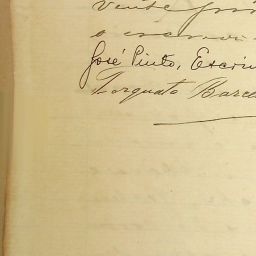 vinte
o escrivi
José Pinto, Escriv
Torquato Barce